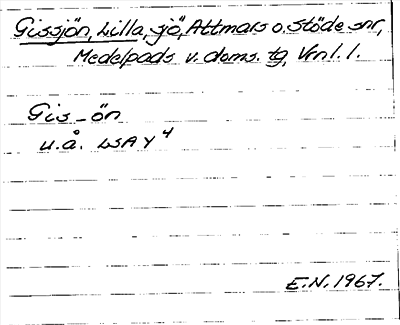 Gissjön, Lilla, sjö, Attmars o. Stöde snr,
Medelpads v. doms. tg, Vrnl. l.
Gis-ön
u.å. LSA Y 4
E.N. 1967.